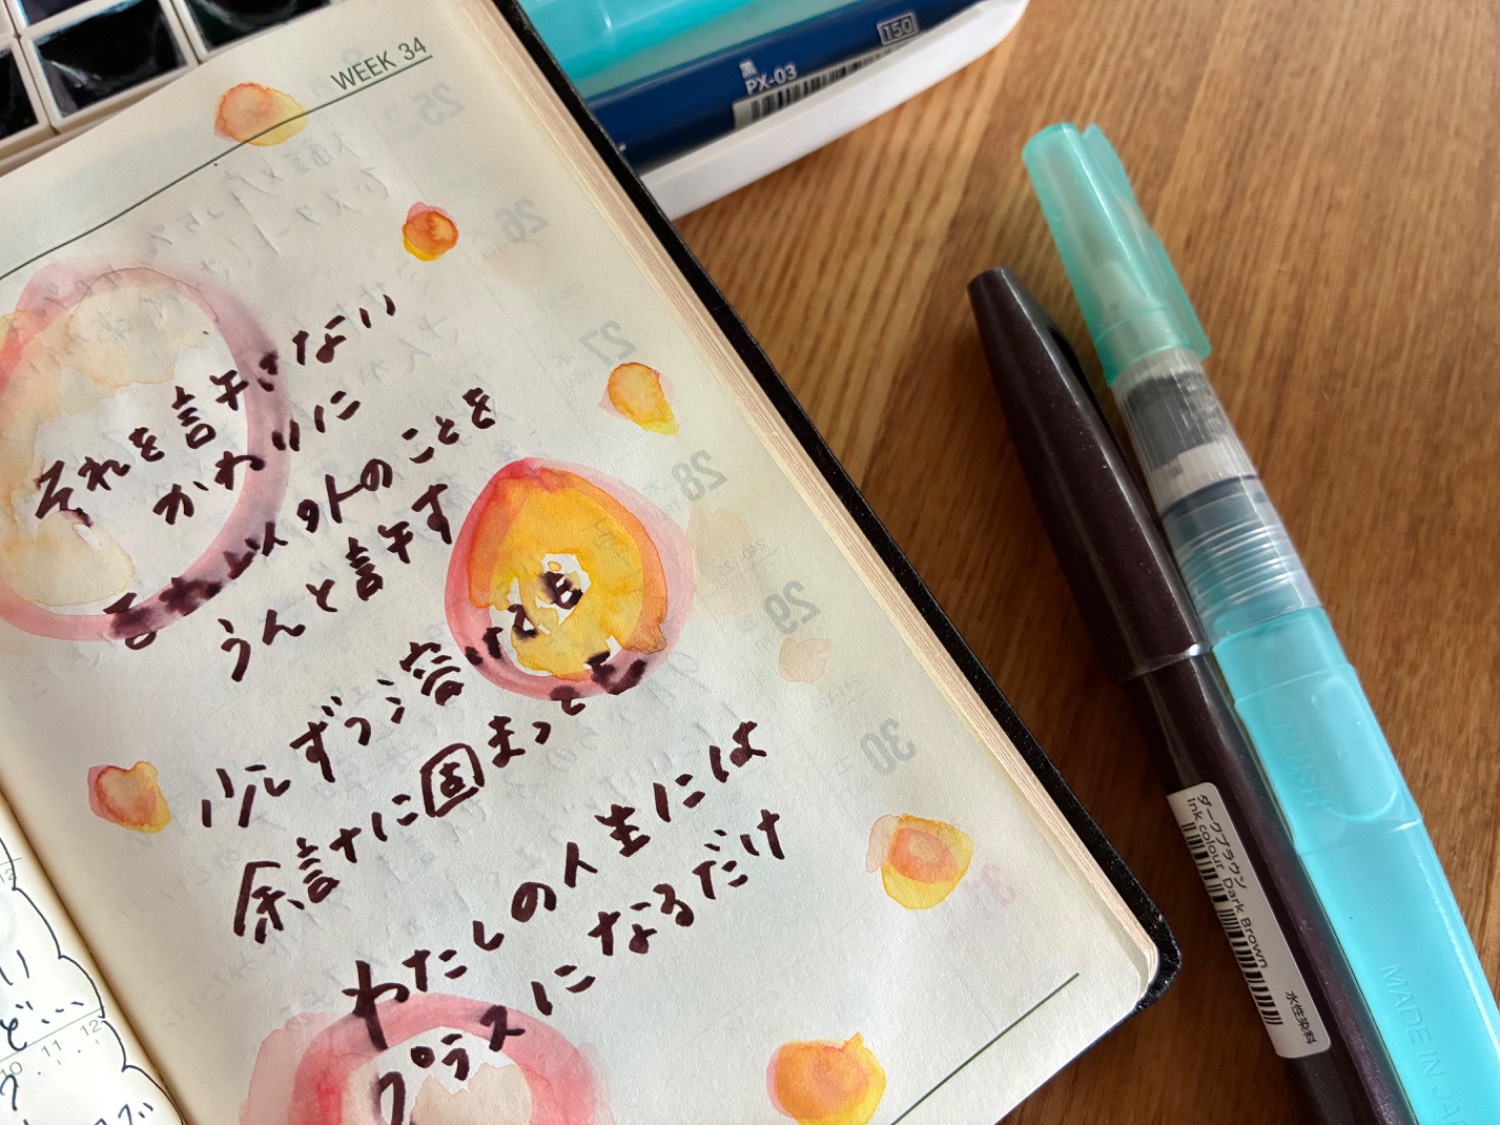 WEEK 34
それを許さない
かわりに
それ以外のことを
うんと許す
少しずつ溶けても
余計に固まっても
わたしの人生には
プラスになるだけ
い
ど…
10 11 12
150
黒
PX-03
ダークブラウン
ink colour Dark Brown
水性染料
PUSH
MADE IN JA